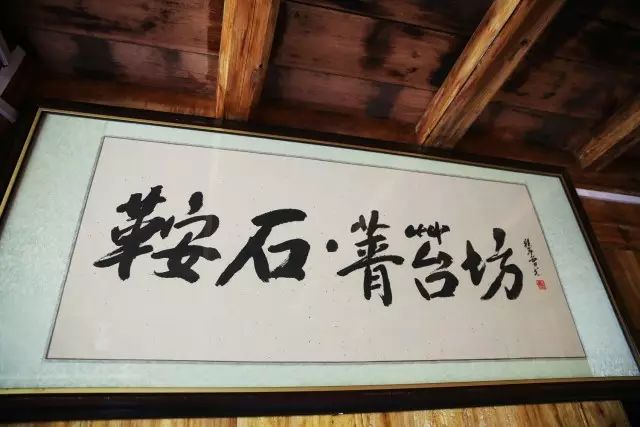 鞍石·菁苔坊